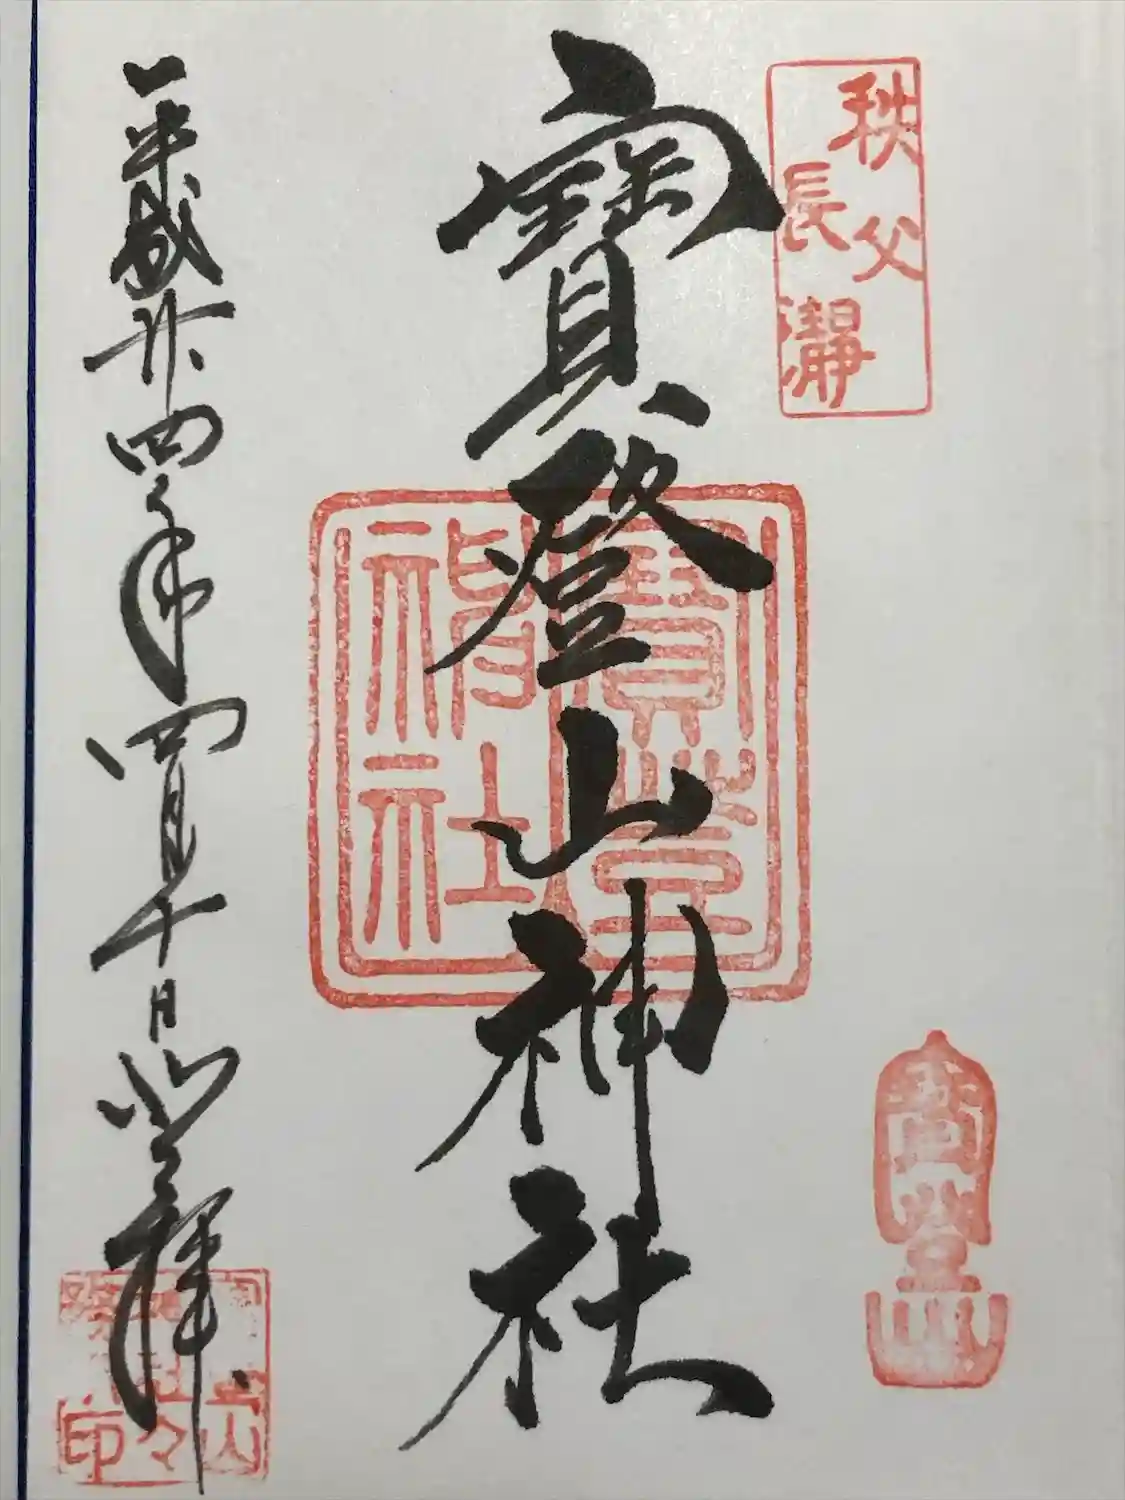 秩父
長瀞
寶登山神社
寶登
神社
寶登山
平成廿四年四月十日 登拝